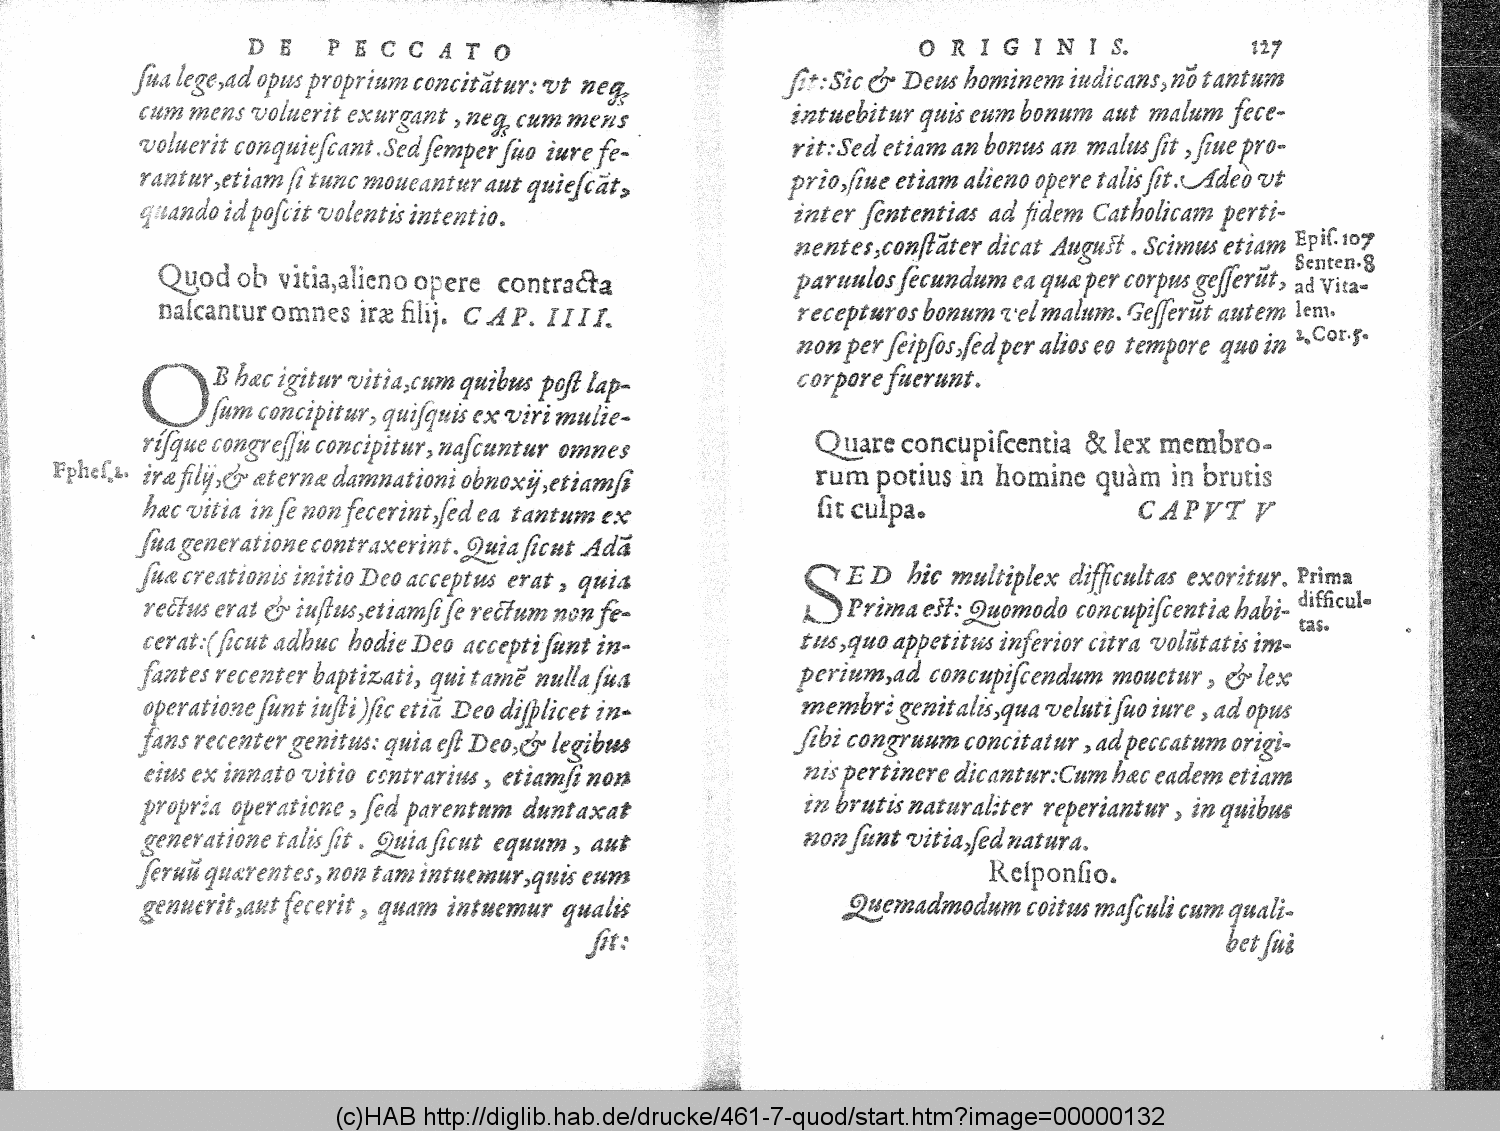 DE PECCATO
ſua lege, ad opus proprium concitãtur: vt neq́;
cum mens voluerit exurgant, neq́; cum mens
voluerit conquieſcant. Sed ſemper ſuo iure fe-
rantur, etiam ſi tunc moueantur aut quieſcãt,
quando id poſcit volentis intentio.
Quod ob vitia, alieno opere contracta
naſcantur omnes iræ filij. CAP. IIII.
OB hæc igitur vitia, cum quibus poſt lap-
ſum concipitur, quiſquis ex viri mulie-
ríſque congreſſu concipitur, naſcuntur omnes
Epheſ.2.
iræ filij, & æternæ damnationi obnoxij, etiamſi
hæc vitia in ſe non fecerint, ſed ea tantum ex
ſua generatione contraxerint. Quia ſicut Adã
ſuæ creationis initio Deo acceptus erat, quia
rectus erat & iuſtus, etiamſi ſe rectum non fe-
cerat: (ſicut adhuc hodie Deo accepti ſunt in-
fantes recenter baptizati, qui tamẽ nulla ſua
operatione ſunt iuſti) ſic etiã Deo diſplicet in-
fans recenter genitus: quia eſt Deo, & legibus
eius ex innato vitio contrarius, etiamſi non
propria operatione, ſed parentum duntaxat
generatione talis ſit. Quia ſicut equum, aut
ſeruũ quærentes, non tam intuemur, quis eum
genuerit, aut fecerit, quam intuemur qualis
ſit:
ORIGINIS. 127
ſit: Sic & Deus hominem iudicans, nõ tantum
intuebitur quis eum bonum aut malum fece-
rit: Sed etiam an bonus an malus ſit, ſiue pro-
prio, ſiue etiam alieno opere talis ſit. Adeò vt
inter ſententias ad fidem Catholicam perti-
nentes, conſtãter dicat Auguſt. Scimus etiam
paruulos ſecundum ea quæ per corpus geſſerũt,
recepturos bonum vel malum. Geſſerũt autem
non per ſeipſos, ſed per alios eo tempore quo in
corpore fuerunt.
Epiſ. 107
Senten. 8
ad Vita-
lem.
2. Cor. 5.
Quare concupiſcentia & lex membro-
rum potius in homine quàm in brutis
ſit culpa. CAPVT V
SED hic multiplex difficultas exoritur.
Prima eſt: Quomodo concupiſcentiæ habi-
tus, quo appetitus inferior citra volũtatis im-
perium, ad concupiſcendum mouetur, & lex
membri genitalis, qua veluti ſuo iure, ad opus
ſibi congruum concitatur, ad peccatum origi-
nis pertinere dicantur: Cum hæc eadem etiam
in brutis naturaliter reperiantur, in quibus
non ſunt vitia, ſed natura.
Prima
difficul-
tas.
Reſponſio.
Quemadmodum coitus maſculi cum quali-
bet ſui
(c)HAB http://diglib.hab.de/drucke/461-7-quod/start.htm?image=00000132